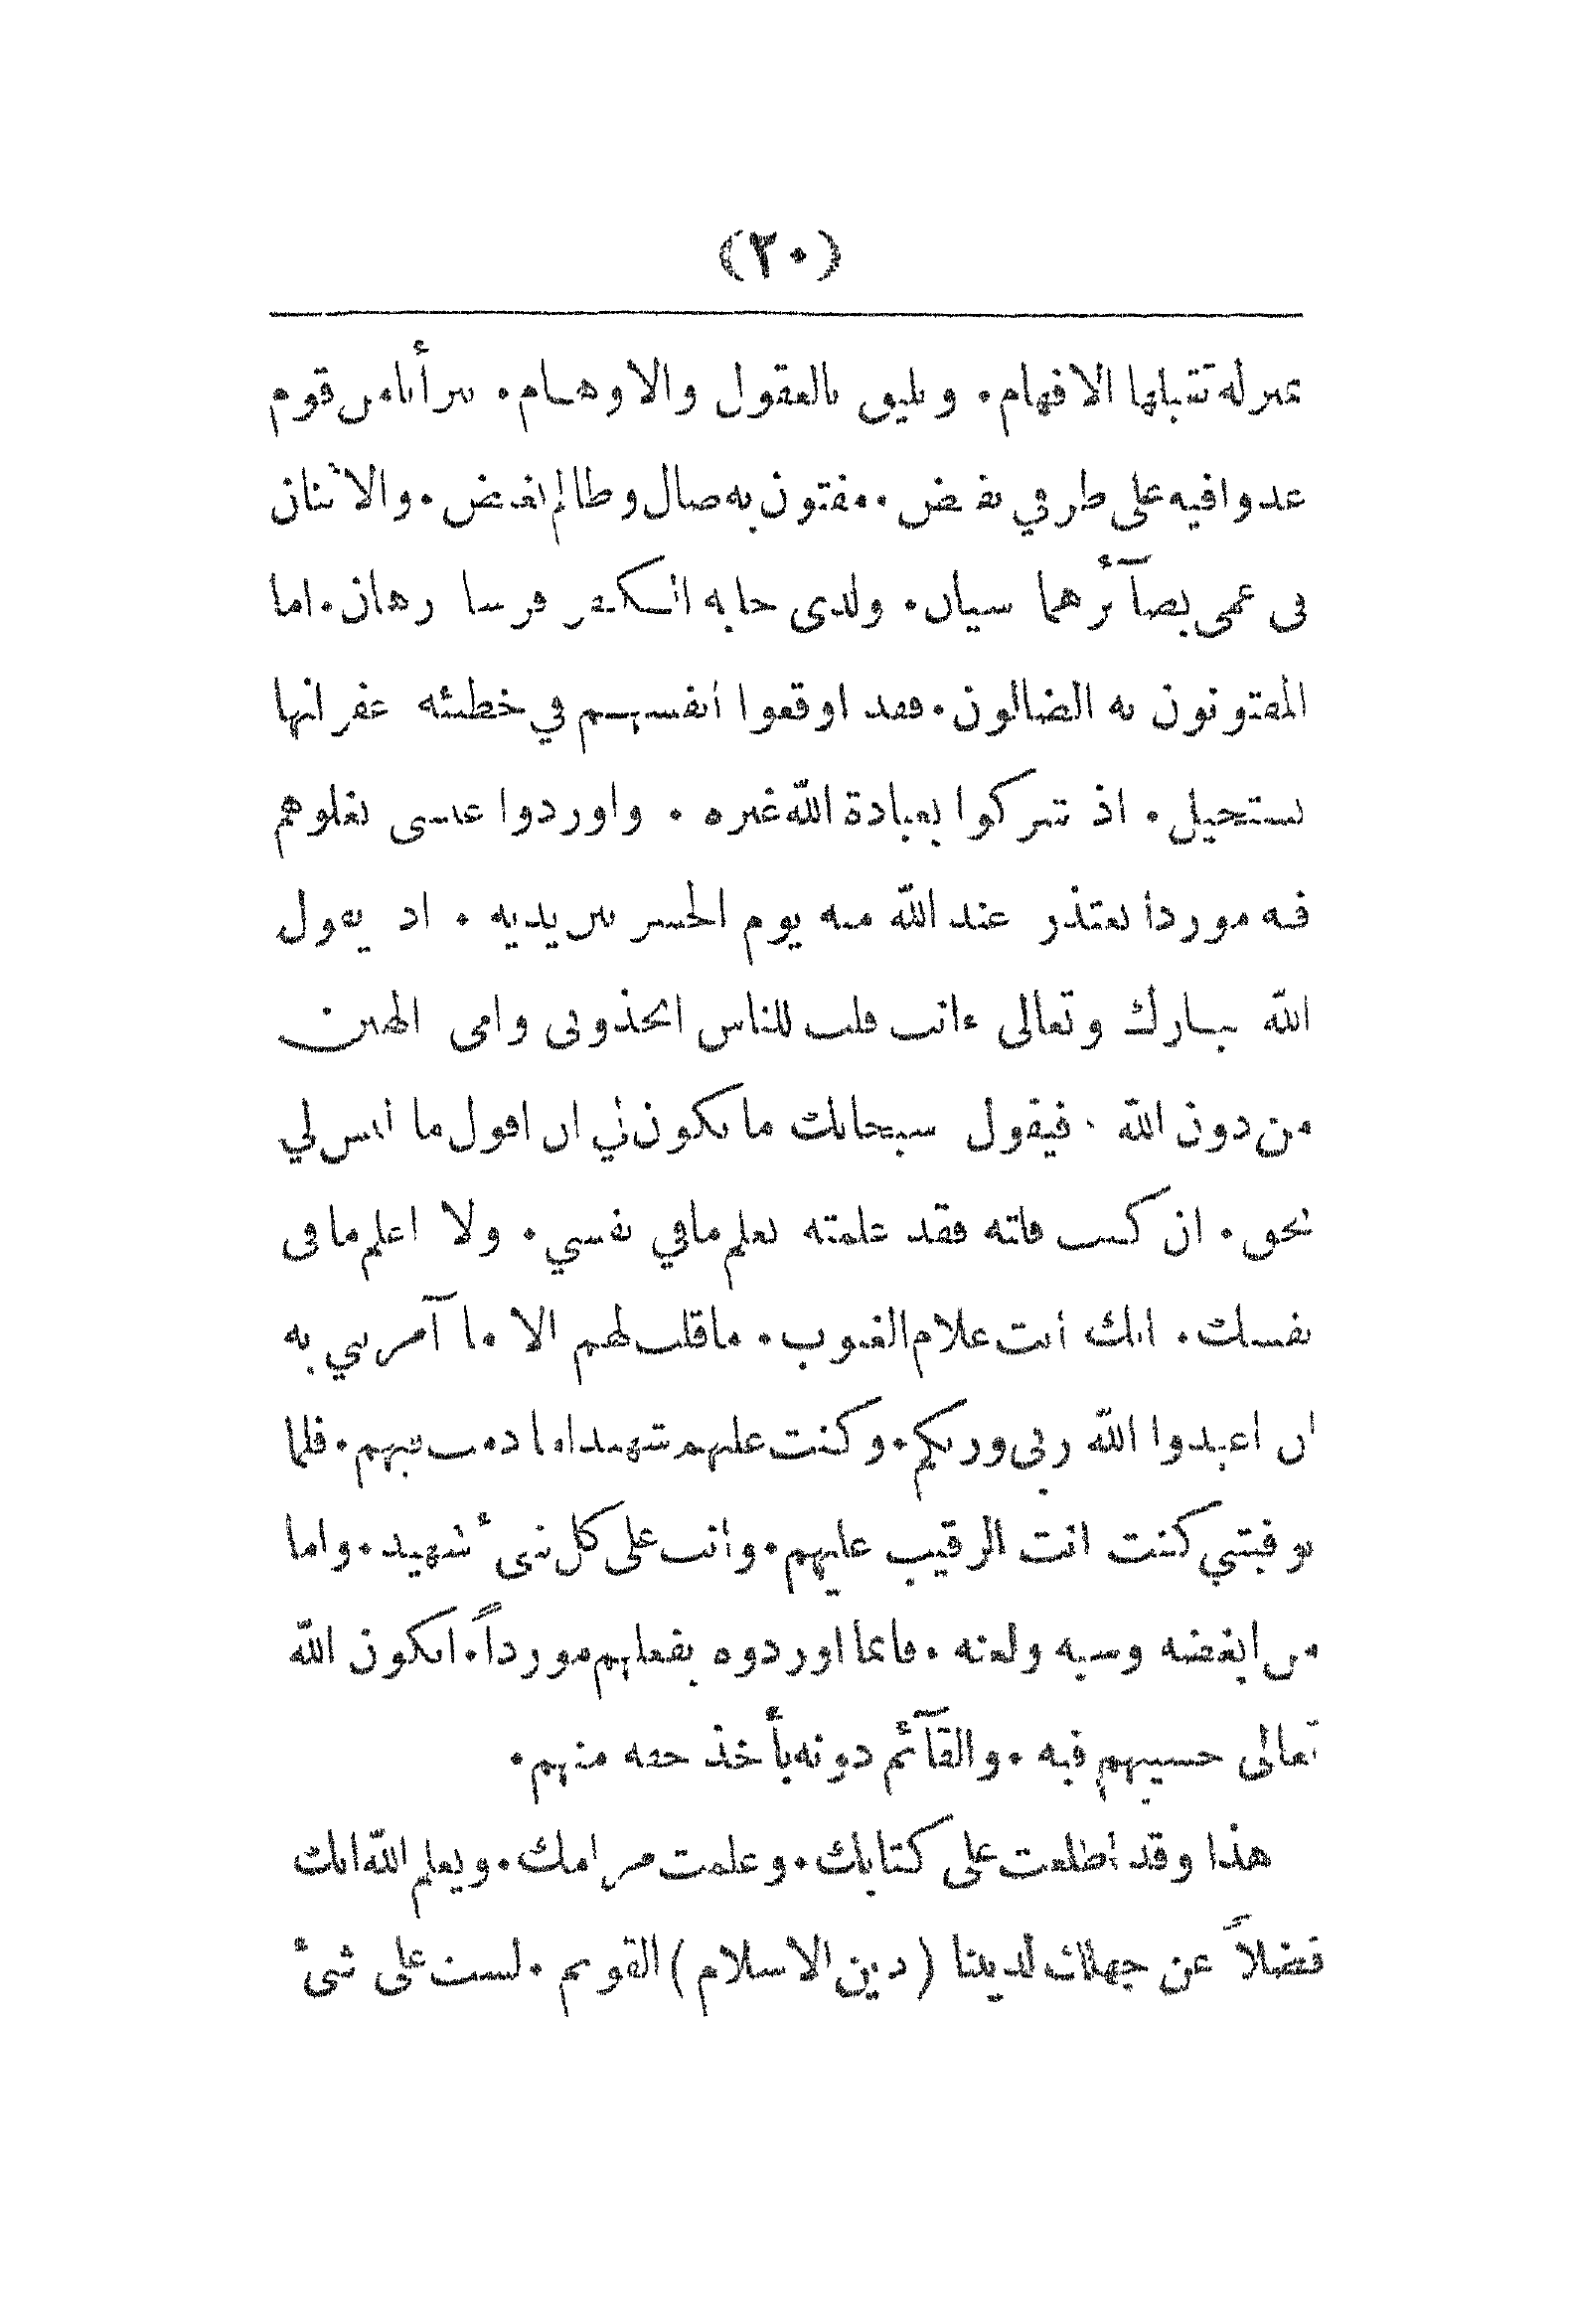 (٢٠)
بمنزلة تقبلها الافهام. ويليق بالعقول والاوهام. نبرأ بها من قوم
غدوا فيه على طرفي نقيض. مفتون به ضال وظالم بغيض. والاثنان
في عمى بصآئرهما سيان. ولدى حلبة الكفر فرسا رهان. اما
المفتونون به الضالون. فقد اوقعوا انفسهم في خطيئة غفرانها
يستحيل. اذ شركوا بعبادة الله غيره. واوردوا عيسى بغلوهم
فيه مورداً يعتذر عند الله منه يوم الحشر بين يديه. اذ يقول
الله تبارك وتعالى ءانت قلت للناس اتخذوني وامي الهين
من دون الله. فيقول سبحانك ما يكون لي ان اقول ما ليس لي
بحق. ان كنت قلته فقد علمته تعلم ما في نفسي. ولا اعلم ما في
نفسك. انك انت علام الغيوب. ما قلت لهم الا ما آمرتني به
ان اعبدوا الله ربي وربكم. وكنت عليهم شهيدا ما دمت فيهم. فلما
توفيتني كنت انت الرقيب عليهم. وانت على كل شئ شهيد. واما
من ابغضه وسبه ولعنه. فانما اوردوه بفعلهم مورداً. ليكون الله
تعالى حسيبهم فيه. والقآئم دونه بأخذ حقه منهم.
هذا وقد اطلعت على كتابك. وعلمت مرامك. ويعلم الله انك
فضلاً عن جهلك لديننا (دين الاسلام) القويم. لست على شئ